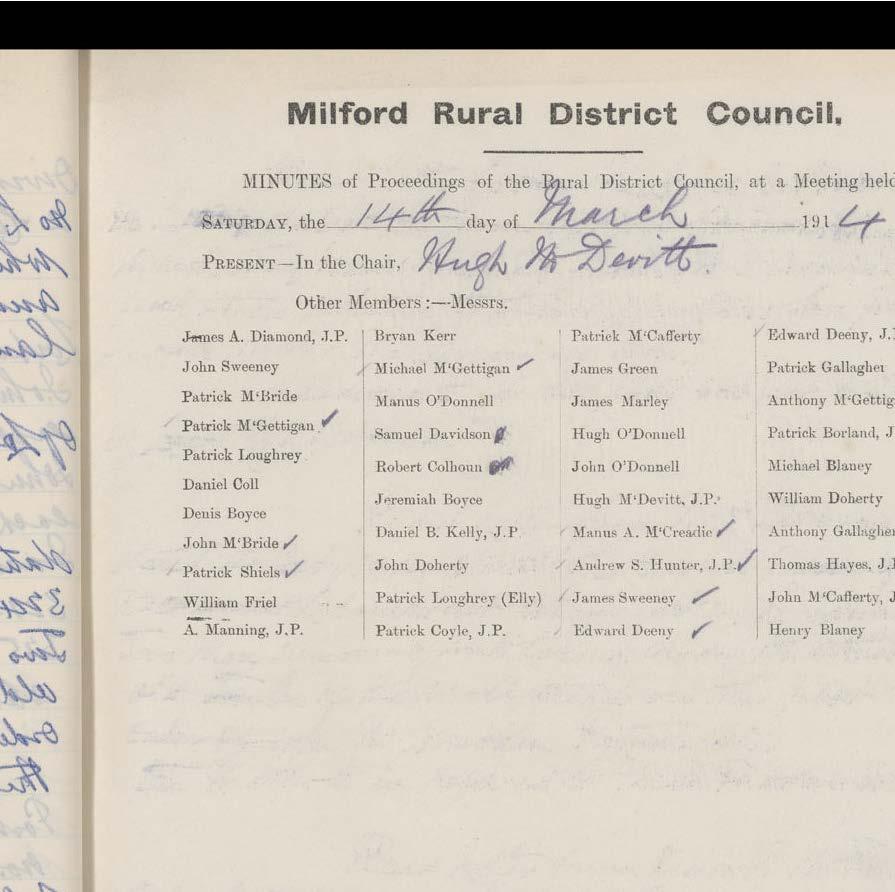 Milford Rural District Council.
MINUTES of Proceedings of the Rural District Council, at a Meeting held
SATURDAY, the 14th day of March 1914
PRESENT—In the Chair, Hugh McDevitt.
Other Members :—Messrs.
James A. Diamond, J.P.
John Sweeney
Patrick M‘Bride
Patrick M‘Gettigan ✓
Patrick Loughrey
Daniel Coll
Denis Boyce
John M‘Bride ✓
Patrick Shiels ✓
William Friel
A. Manning, J.P.
Bryan Kerr
Michael M‘Gettigan ✓
Manus O’Donnell
Samuel Davidson
Robert Colhoun
Jeremiah Boyce
Daniel B. Kelly, J.P.
John Doherty
Patrick Loughrey (Elly)
Patrick Coyle, J.P.
Patrick M‘Cafferty
James Green
James Marley
Hugh O’Donnell
John O’Donnell
Hugh M‘Devitt, J.P.
Manus A. M‘Creadie ✓
Andrew S. Hunter, J.P. ✓
James Sweeney ✓
Edward Deeny ✓
Edward Deeny, J.
Patrick Gallagher
Anthony M‘Gettig
Patrick Borland, J
Michael Blaney
William Doherty
Anthony Gallagher
Thomas Hayes, J.
John M‘Cafferty, J
Henry Blaney